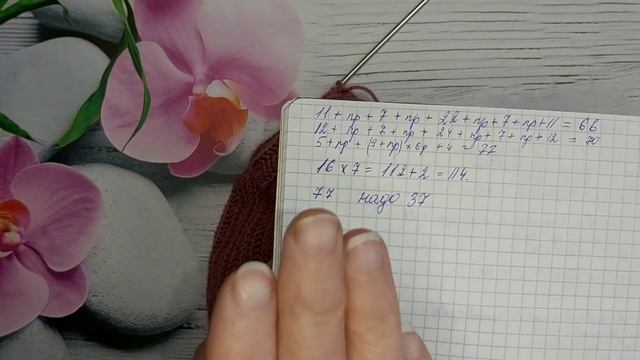 11 + пр + 7 + пр + 22 + пр + 7 + пр + 11 = 66
12 + пр + 7 + пр + 24 + пр + 7 + пр + 12 = 70
5 + пр + (9 + пр) × 6р + 4 = 77
16 × 7 = 112 + 2 = 114.
77 надо 37